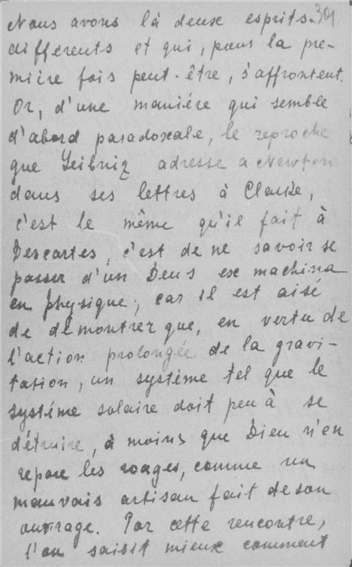 Nous avons là deux esprits 301
différents et qui, pour la pre-
mière fois peut-être, s'affrontent.
Or, d'une manière qui semble
d'abord paradoxale, le reproche
que Leibniz adresse a Newton
dans ses lettres à Clarke,
c'est le même qu'il fait à
Descartes, c'est de ne savoir se
passer d'un Deus ex machina
en physique; car il est aisé
de démontrer que, en vertu de
l'action prolongée de la gravi-
tation, un système tel que le
système solaire doit peu à se
détruire, à moins que Dieu n'en
repare les rouages, comme un
mauvais artisan fait de son
ouvrage. Par cette rencontre,
l'on saisit mieux comment